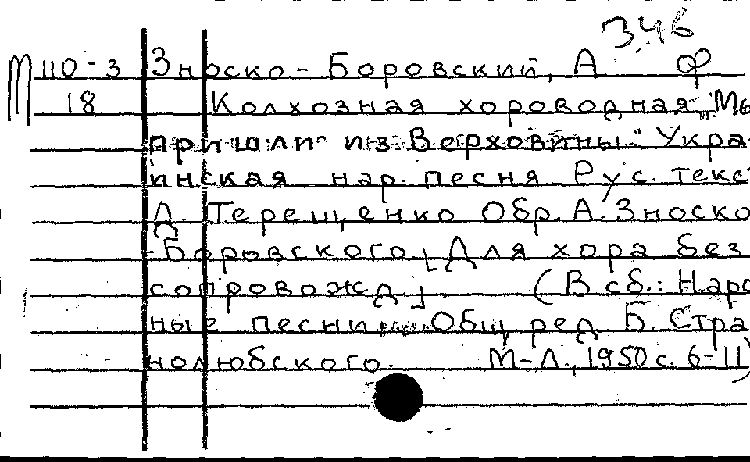 346
М 110-3 Зноско-Боровский, А Ф
18 Колхозная хороводная „Мы
пришли из Верховины". Укра-
инская нар. песня Рус. текс
Д. Терещенко Обр. А. Зноско
-Боровского. [Для хора без
сопровожд] (В сб.: Наро
ные песни Общ. ред Б. Стра
нолюбского. М-Л., 1950 с. 6-11)